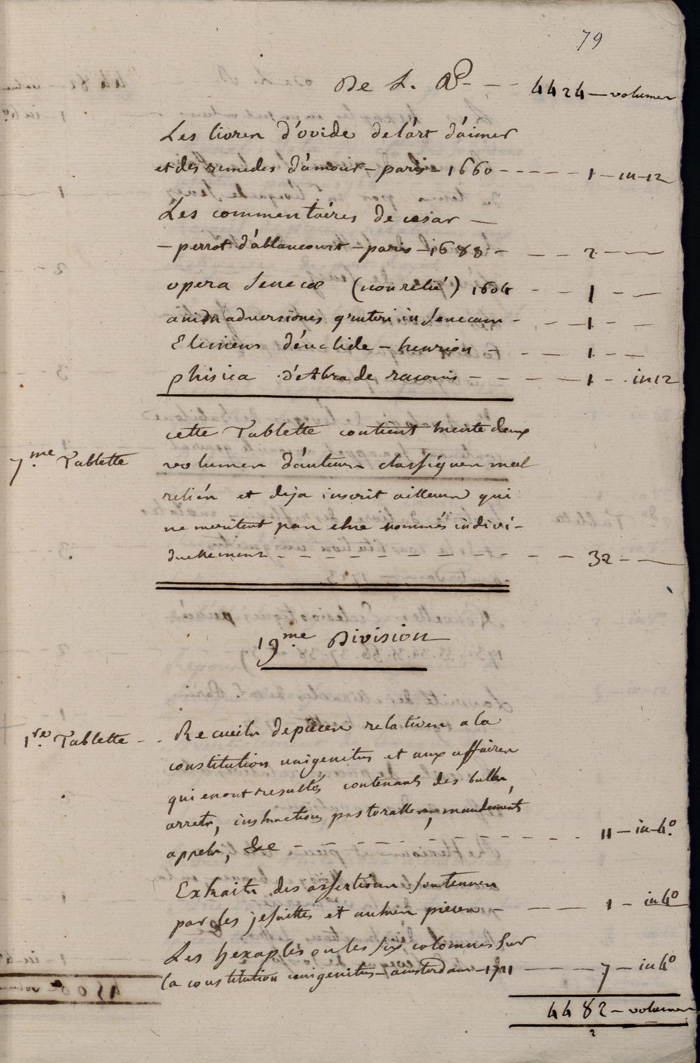 79
De L. P. - - 4424 - volumes
Les livres d'ovide de l'art d'aimer
et des remedes d'amour - paris 1660 - - - - - 1 - in-12
Les commentaires de cesar -
- perrot d'ablancourt - paris - 1688 - - - 2 - -
opera Senecæ (non relié) 1604 - - 1 - -
animadversiones gruteri in Senecam - - 1 - -
Elemens d'éuclide - henrion - - - 1 - -
phisica d'Abra de raconis - - - 1 - - in 12
7.me Tablette
cette Tablette contient trente deux
volumes d'auteurs classiques mal
reliés et deja inscrit ailleurs qui
ne meritent pas etre nommés indivi-
duellement - - - - - - - - - - 32 - -
19.me Division
1.re Tablette - -
Recueils de pieces relatives a la
constitution unigenitus et aux affaires
qui en ont resultés contenants des bulles,
arrets, instructions pastoralles, mandements
appels, &c - - - - - - - 11 - in-4.º
Extraits des assertions soutenues
par les jesuittes et autres pieces - - - - 1 - in 4º
Les hexaples ou les six colomnes sur
la constitution unigenitus - amsterdam - 1721 - - - 7 - in 4º
4482 - volumes
2